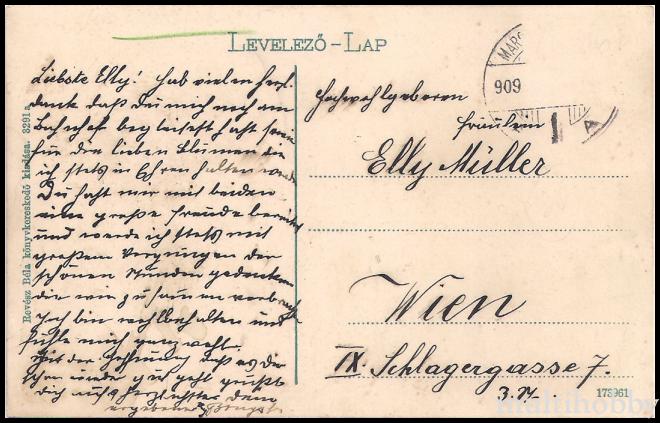 LEVELEZŐ-LAP
Liebste Elly! Hab vielen herzl.
Dank daß Du mich noch am
Bahnhof begleitet hast sowie
für die lieben Blumen die
ich stets in Ehren halten werde
Du hast mir mit beiden
eine große Freude bereitet
und werde ich stets mit
großem Vergnügen der
schönen Stunden gedenken
die wir zusammen verbracht
Ich bin wohlbehalten und
fühle mich ganz wohl.
Mit der Hoffnung daß es Dir
schon wieder gut geht grüßt
Dich auf's herzlichste Dein
ergebener
Hochwohlgeboren
Fräulein
Elly Müller
Wien
IX. Schlagergasse 7.
3. St.
MAROS
909
1
A
Révész Béla könyvkereskedő kiadása. 3291a
178961
multihobby